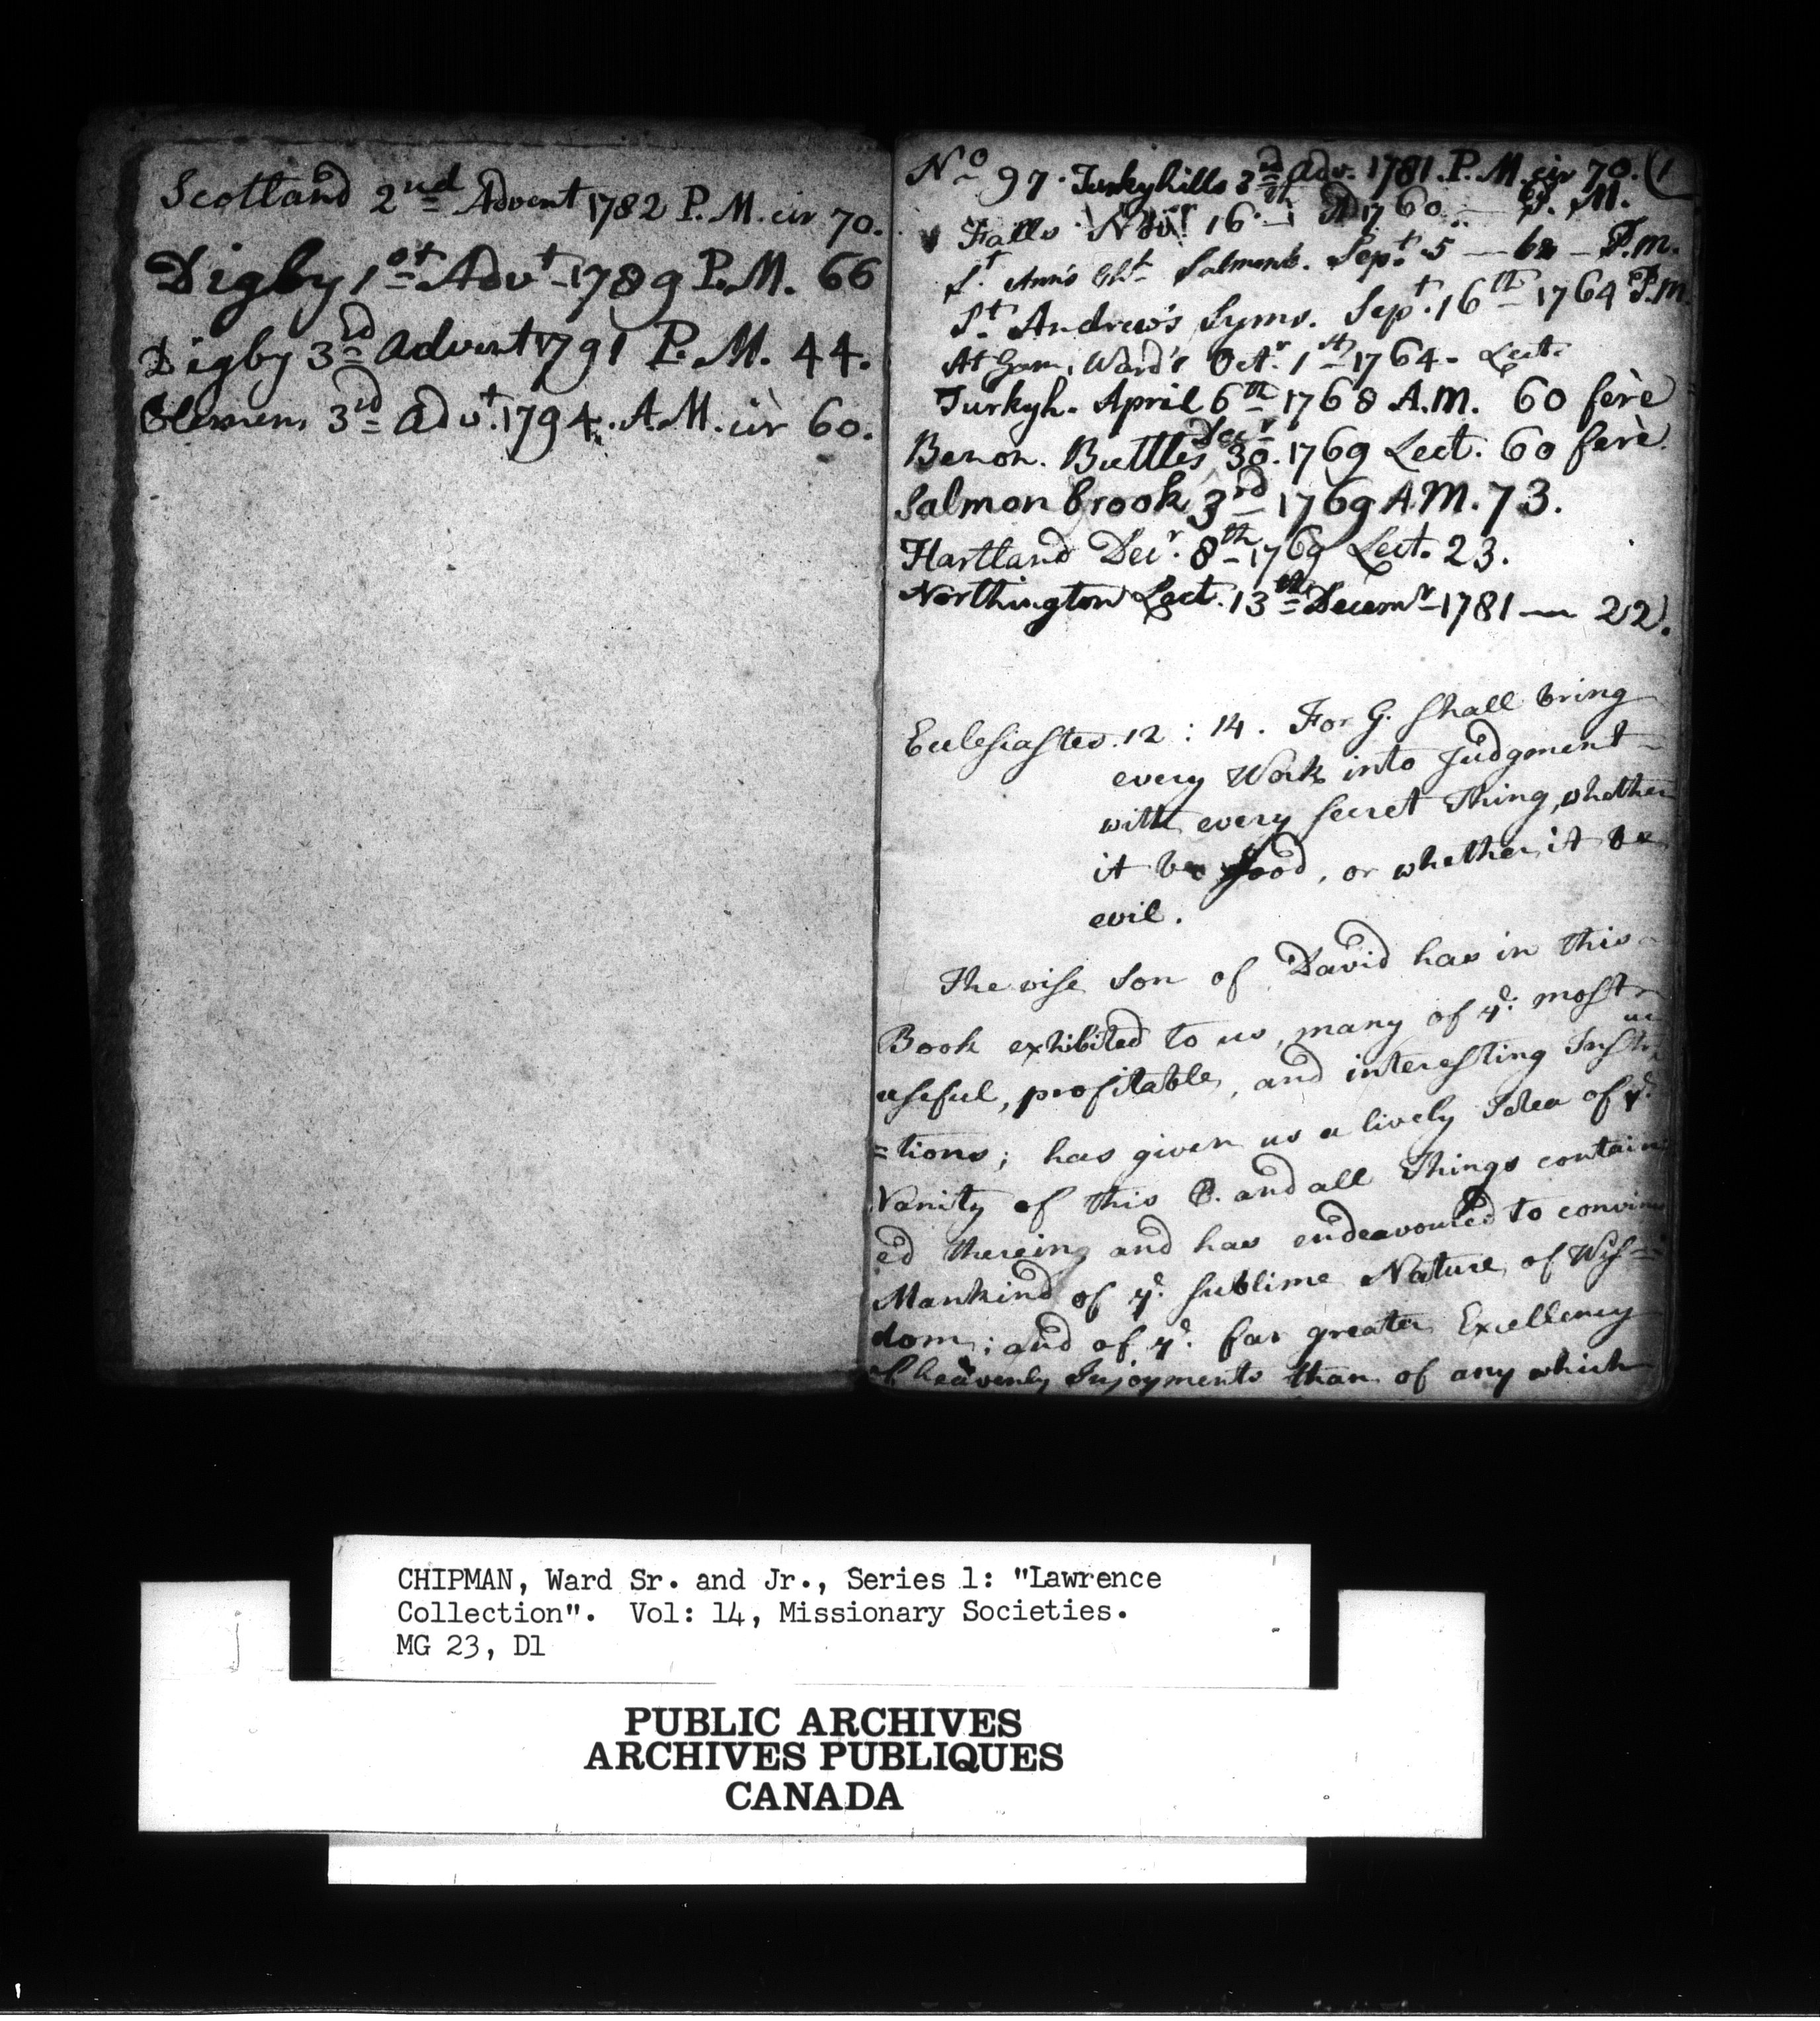 Scotland 2nd Advent 1782 P. M. cir 70.
Digby 1st Advt 1789 P.M. 66
Digby 3rd Advent 1791 P. M. 44.
Clemens 3rd Advt. 1794. A.M. cir 60.
No 97. Turkyhills 3rd Adv. 1781. P. M. cir 70. (1
Falls Novr 16th 1760 — P. M.
St Ann's Salmonb. Sept. 5 — 62 — P.m.
St. Andrew's Syms. Sept. 16th 1764 P.m.
At Ward's Octr. 1st 1764 - Lect.
Turkyh. April 6th 1768 A.M. 60 ferè
Benon. Buttles Decr 30. 1769 Lect. 60 ferè.
Salmon brook 3rd 1769 A.M. 73.
Hartland Decr. 8th 1769 Lect. 23.
Northington Lect. 13th Decemr 1781 — 22.
Ecclesiastes. 12 : 14. For G. shall bring
every Work into Judgment
with every secret Thing, whether
it be good, or whether it be
evil.
The wise Son of David has in this
Book exhibited to us, many of ye. most
useful, profitable, and interesting Instruc
=tions; has given us a lively Idea of ye.
Vanity of this and all Things contain
ed therein; and has endeavoured to convince
Mankind of ye. sublime Nature of Wis=
dom; and of ye. far greater Excellency
of heavenly Injoyments than of any which
CHIPMAN, Ward Sr. and Jr., Series 1: "Lawrence
Collection". Vol: 14, Missionary Societies.
MG 23, D1
PUBLIC ARCHIVES
ARCHIVES PUBLIQUES
CANADA